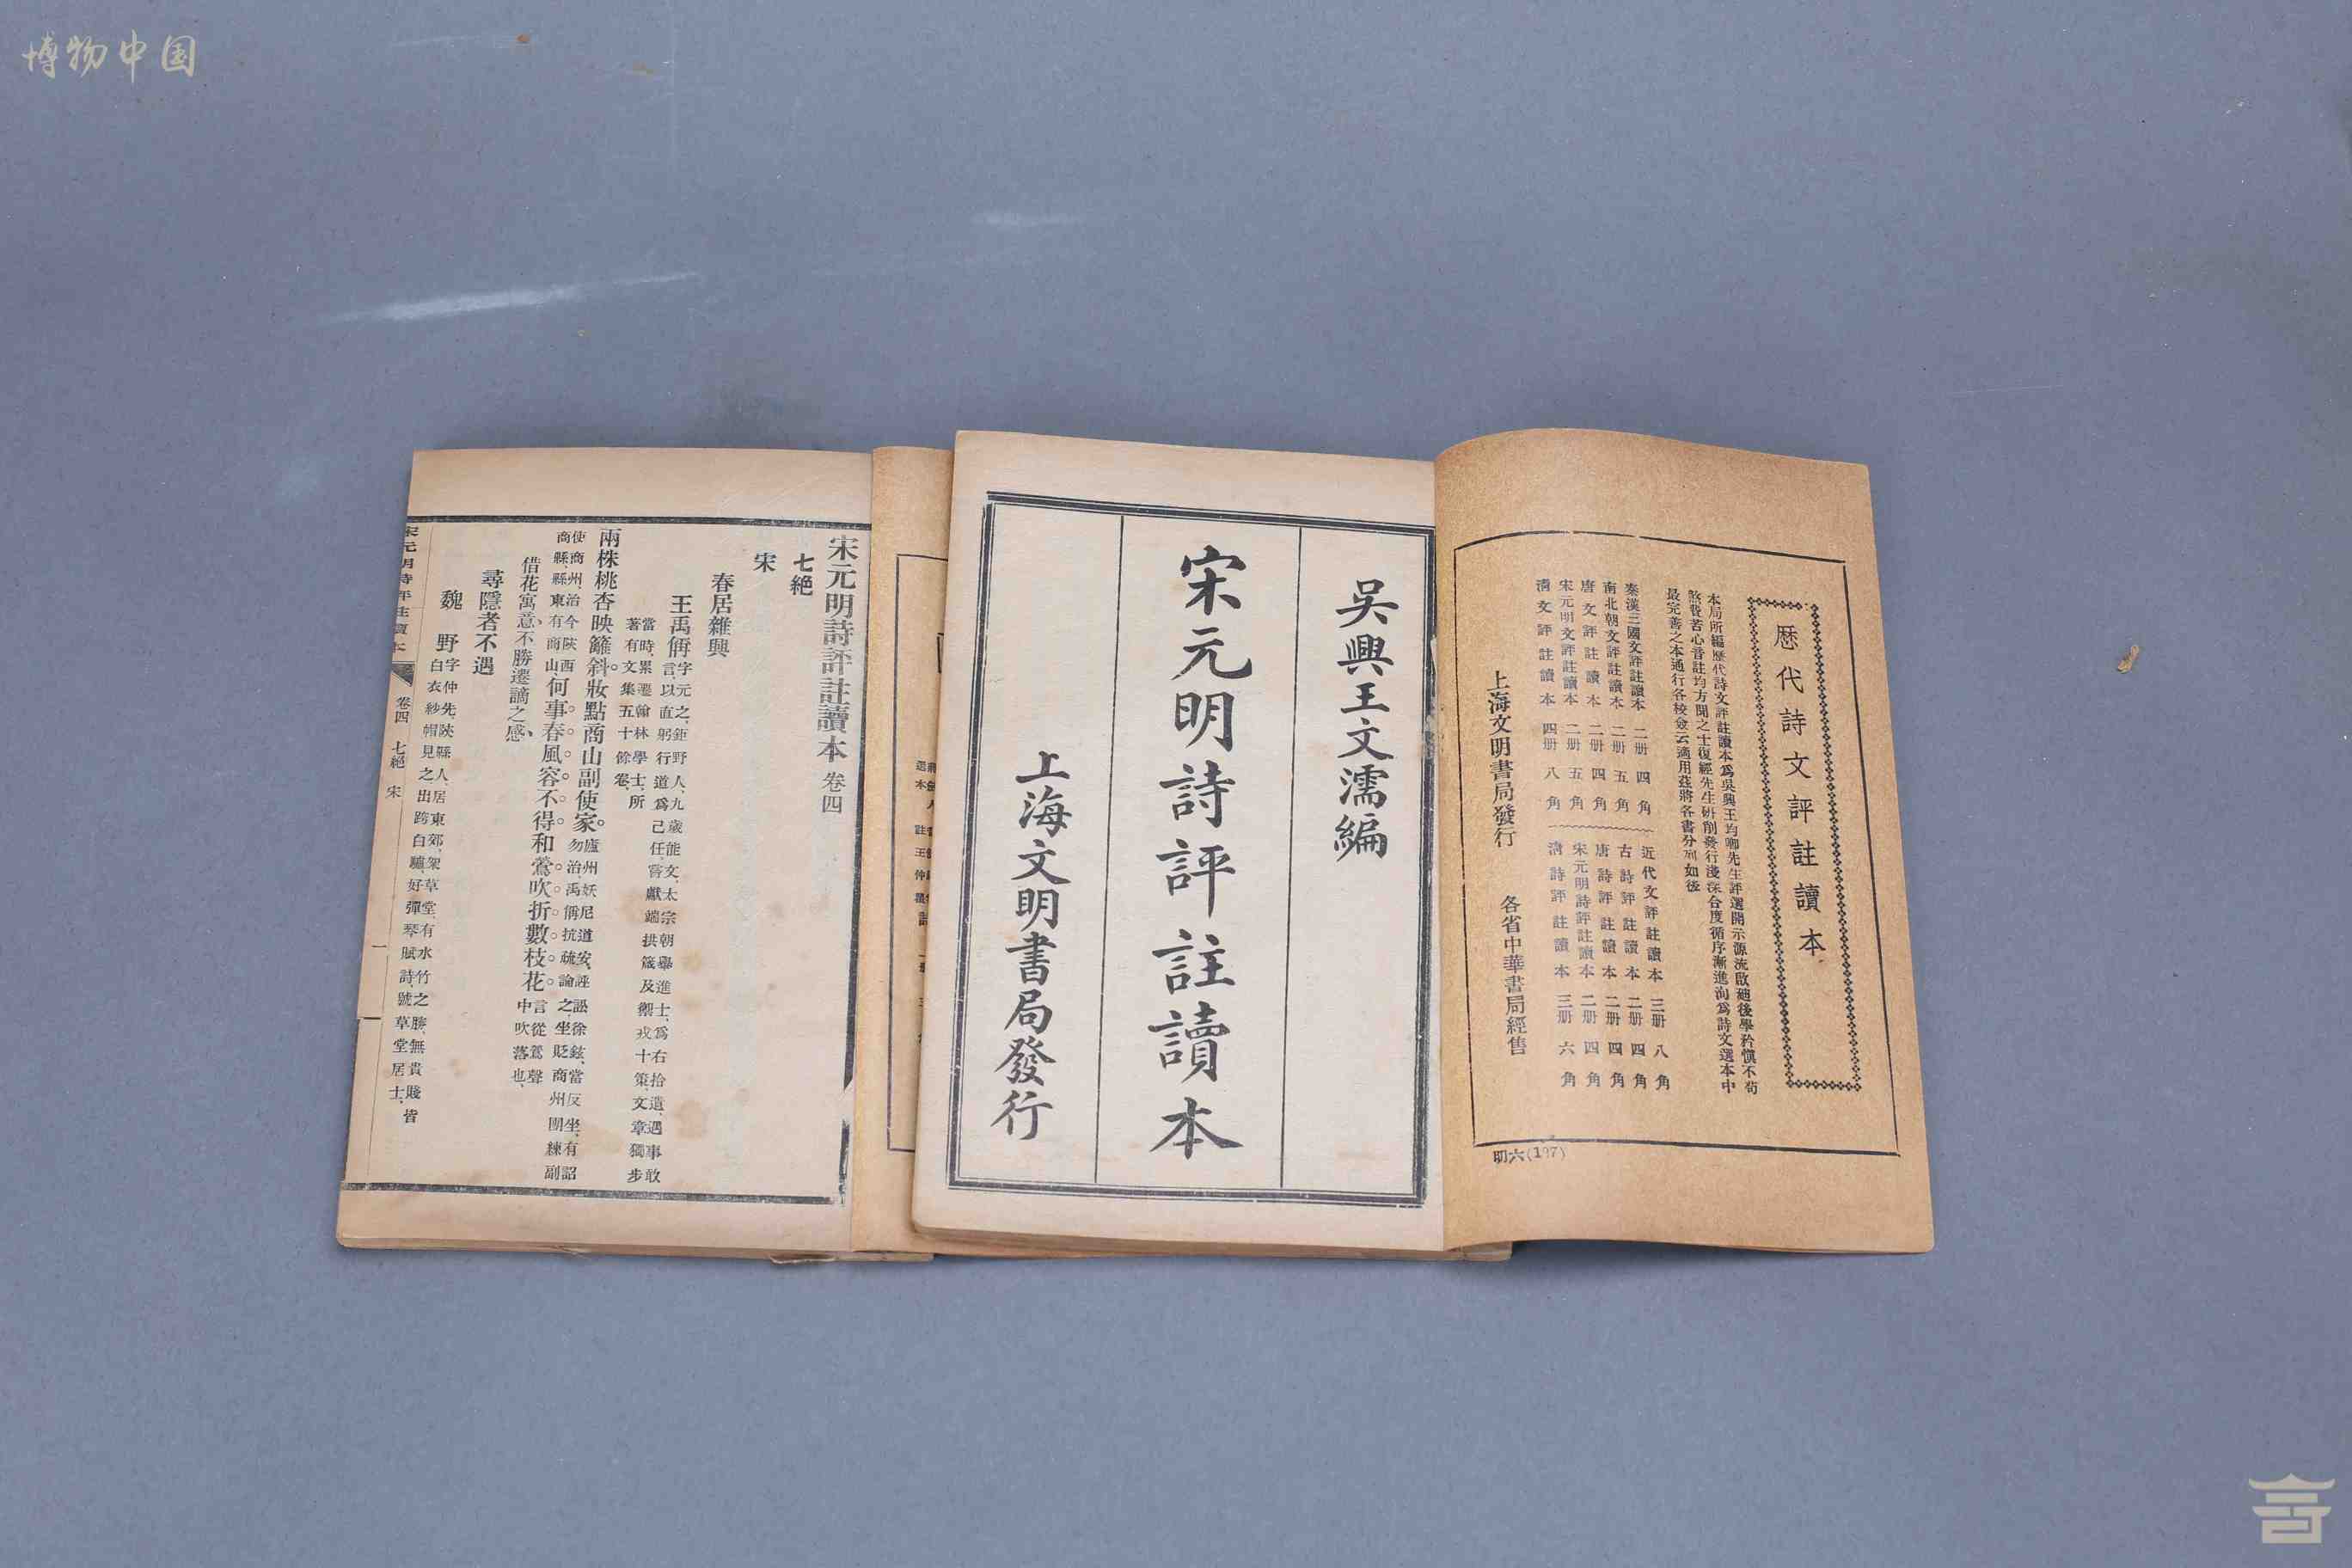 博物中国
歷代詩文評註讀本
本局所編歷代詩文評註讀本爲吳興王均卿先生評選開示源流啟廸後學矜愼不苟
煞費苦心音註均方聞之士復經先生硏削發行淺深合度循序漸進洵爲詩文選本中
最完善之本通行各校僉云適用茲將各書分列如後
秦漢三國文評註讀本 二册 四角
南北朝文評註讀本 二册 五角
唐文評註讀本 二册 四角
宋元明文評註讀本 二册 五角
淸文評註讀本 四册 八角
近代文評註讀本 三册 八角
古詩評註讀本 二册 四角
唐詩評註讀本 二册 四角
宋元明詩評註讀本 二册 四角
淸詩評註讀本 三册 六角
上海文明書局發行 各省中華書局經售
明六(197)
吳興王文濡編
宋元明詩評註讀本
上海文明書局發行
宋元明詩評註讀本 卷四
七絕
宋
春居雜興
王禹偁 字元之、鉅野人、九歲能文、太宗朝舉進士、爲右拾遺、遇事敢
言、以直躬行道爲己任、嘗獻端拱箴及禦戎十策、文章獨步
當時、累遷翰林學士、所
著有文集五十餘卷、
兩株桃杏映籬斜。妝點商山副使家。 廬州妖尼道安、誣訟徐鉉、當反坐、有詔
勿治、禹偁抗疏論之、坐貶商州團練副
使、商州、治今陝西
商縣、縣東有商山、 何事春風容不得。和鶯吹折數枝花。 言從鶯聲
中吹落也、
借花寓意、不勝遷謫之感、
尋隱者不遇
魏野 字仲先、陝縣人、居東郊、架草堂、有水竹之勝、無貴賤皆
白衣紗帽見之、出跨白驢、好彈琴賦詩、號草堂居士、
宋元明詩評註讀本 卷四 七絕 宋 一